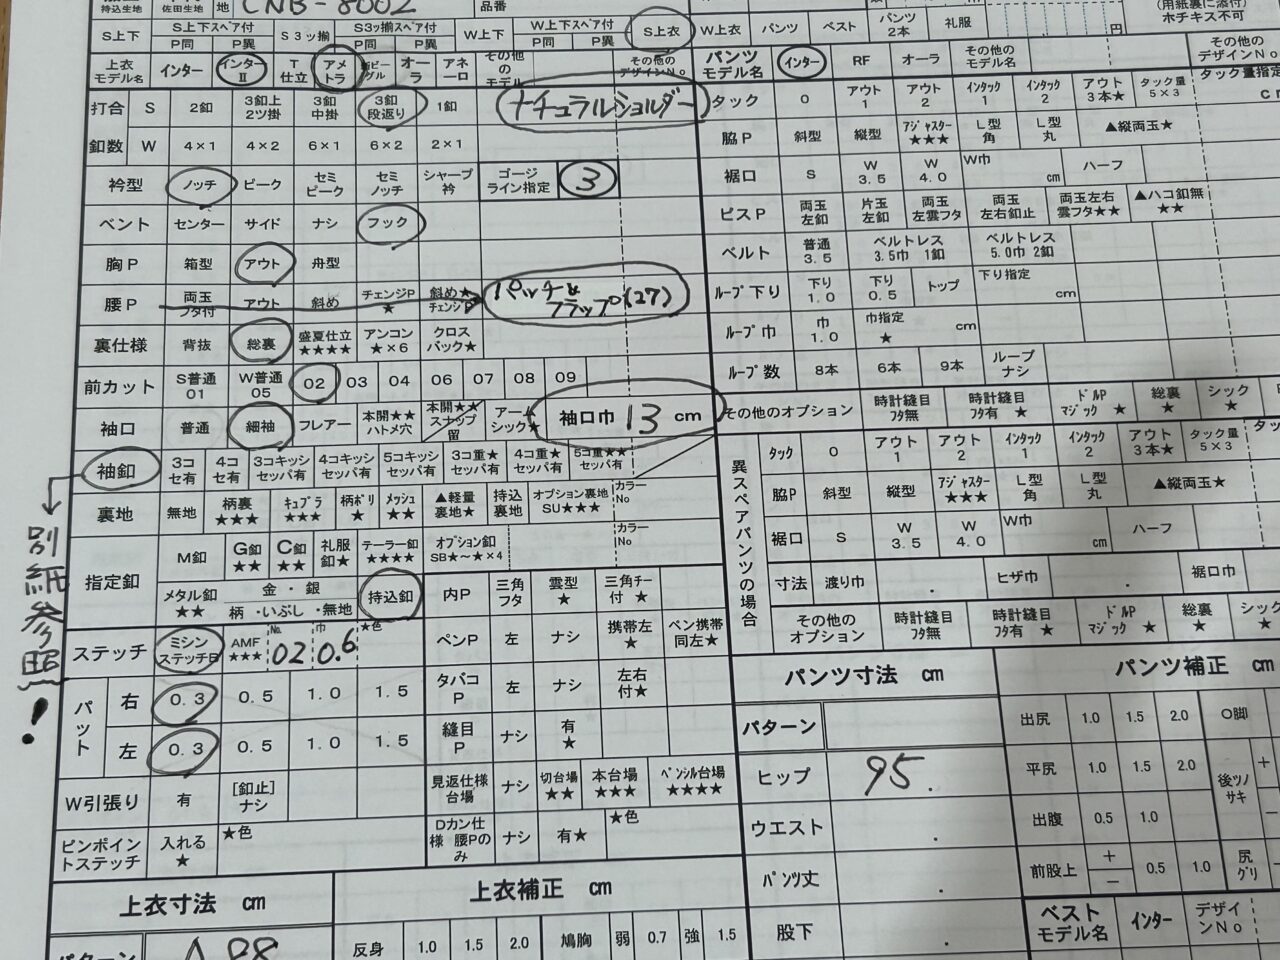 持込生地 佐田生地 地 CNB-8002 品番
S上下 S上下スペア付 P同 P異 S3ッ揃 S3ッ揃スペア付 P同 P異 W上下 W上下スペア付 P同 P異 S上衣 W上衣 パンツ ベスト パンツ2本 礼服 円 (用紙裏に添付) ホチキス不可
上衣モデル名 インター インターⅡ T仕立 アメトラ オーラ アネーロ その他のモデル その他のデザインNo
打合 S 2釦 3釦上2ツ掛 3釦中掛 3釦段返り 1釦 ナチュラルショルダー
釦数 W 4×1 4×2 6×1 6×2 2×1
衿型 ノッチ ピーク セミピーク セミノッチ シャープ衿 ゴージライン指定 3
ベント センター サイド ナシ フック
胸P 箱型 アウト 舟型
腰P 両玉フタ付 アウト 斜め チェンジP★ 斜め★チェンジP パッチ&フラップ(27)
裏仕様 背抜 総裏 盛夏仕立★★★★ アンコン★×6 クロスバック★
前カット S普通01 W普通05 02 03 04 06 07 08 09
袖口 普通 細袖 フレアー 本開★★ハトメ穴 本開★★スナップ留 アームシック★ 袖口巾 13 cm
袖釦 3コセ有 4コセ有 3コキッシセッパ有 4コキッシセッパ有 5コキッシセッパ有 3コ重★セッパ有 4コ重★セッパ有 5コ重★★セッパ有
裏地 無地 柄裏★★★ キュプラ★★★ 柄ポリ★ メッシュ★★ ▲軽量裏地★ 持込裏地 オプション裏地SU★★★ カラーNo
指定釦 M釦 G釦★★ C釦★★ 礼服釦★ テーラー釦★★★★ オプション釦SB★~★×4 カラーNo
メタル釦★★ 金・銀 柄・いぶし・無地 持込釦
別紙参照!
ステッチ ミシンステッチ AMF★★★ No. 02 巾 0.6 ★色
パット 右 0.3 0.5 1.0 1.5
左 0.3 0.5 1.0 1.5
W引張り 有 [釦止]ナシ
ピンポイントステッチ 入れる★ ★色
内P 三角フタ 雲型★ 三角チー付★
ペンP 左 ナシ 携帯左★ ペン携帯同左★
タバコP 左 ナシ 左右付★
縫目P ナシ 有★
見返仕様台場 ナシ 切台場★★ 本台場★★★ ペンシル台場★★★★
Dカン仕様 腰Pのみ ナシ 有★ ★色
上衣寸法 cm
パターン A88
上衣補正 cm
反身 1.0 1.5 2.0 鳩胸 弱 0.7 強 1.5
パンツモデル名 インター RF オーラ その他のモデル名 その他のデザインNo
タック 0 アウト1 アウト2 インタック1 インタック2 アウト3本★ タック量5×3 タック量指定 cm
脇P 斜型 縦型 アジャスター★★★ L型角 L型丸 ▲縦両玉★
裾口 S W3.5 W4.0 W巾 cm ハーフ
ピスP 両玉左釦 片玉左釦 両玉左雲フタ 両玉左右釦止 両玉左右雲フタ★★ ▲ハコ釦無★★
ベルト 普通3.5 ベルトレス3.5巾 1釦 ベルトレス5.0巾 2釦
ループ下り 下り1.0 下り0.5 トップ 下り指定 cm
ループ巾 巾1.0 巾指定★ cm
ループ数 8本 6本 9本 ループナシ
その他のオプション 時計縫目フタ無 時計縫目フタ有 ★ ドルPマジック ★ 総裏★ シック★
異スペアパンツの場合
タック 0 アウト1 アウト2 インタック1 インタック2 アウト3本★ タック量5×3
脇P 斜型 縦型 アジャスター★★★ L型角 L型丸 ▲縦両玉★
裾口 S W3.5 W4.0 W巾 cm ハーフ
寸法 渡り巾 ヒザ巾 裾口巾
その他のオプション 時計縫目フタ無 時計縫目フタ有 ★ ドルPマジック ★ 総裏★ シック★
パンツ寸法 cm
パターン
ヒップ 95.
ウエスト
パンツ丈
股下
パンツ補正 cm
出尻 1.0 1.5 2.0 O脚
平尻 1.0 1.5 2.0 後ツノサキ + −
出腹 0.5 1.0
前股上 + − 0.5 1.0 尻グリ
ベストモデル名 インター デザインNo